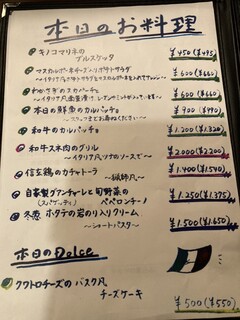 本日のお料理
キノコマリネの
ブルスケッタ
¥450(¥495)
マスカルポーネチーズの
¥600(¥660)
わかさぎのスカペーチェ
〜イタリア風南蛮漬け
¥600(¥660)
本日の鮮魚のカルパッチョ
〜スタッフまでお尋ねください〜
¥900(¥990)
和牛のカルパッチョ
¥1.200(¥1.320)
和牛スネ肉のグリル
〜イタリア風ソースで〜
¥2.000(¥2.200)
信玄鶏のカチャトーラ
〜猟師風〜
¥1.400(¥1.540)
自家製グアンチャーレと旬野菜の
(スパゲッティ) ペペロンチーノ
¥1.250(¥1.375)
冬瓜 ホタテの岩のり入りクリーム
〜ショートパスタ〜
¥1.500(¥1.650)
本日のDolce
クワトロチーズのバスク風
チーズケーキ
¥500(¥550)